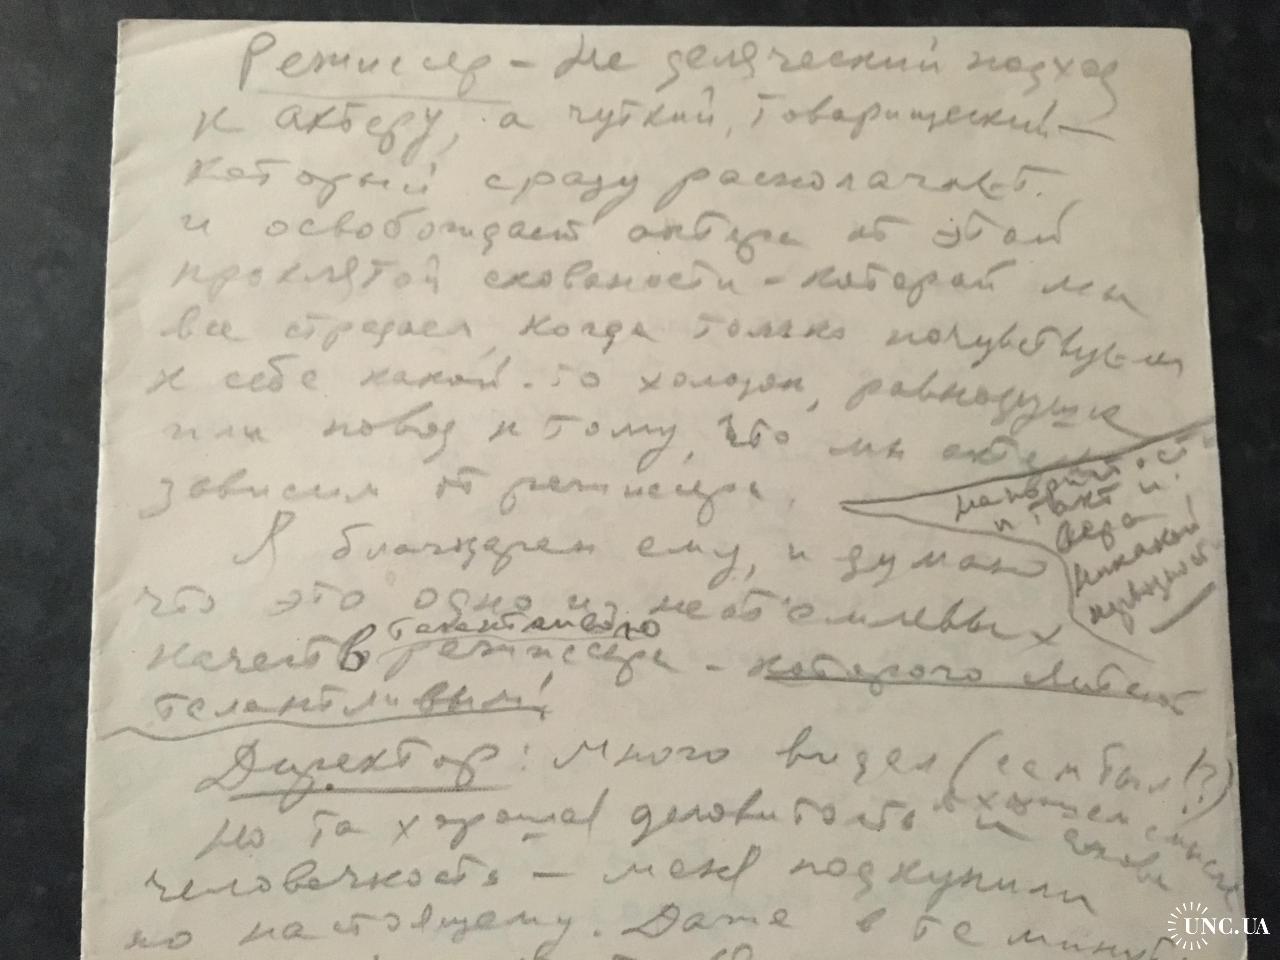 Режиссер – не деляческий подход
к актеру, а чуткий, товарищеский –
который сразу располагает
и освобождает актера от этой
проклятой скованости – которой мы
все страдаем, когда только почувствуем
к себе какой-то холодок, равнодушие
или повод к тому, что мы актеры
зависим от режиссера.
и такт и
вера
никакой
Я благодарен ему, и думаю
что это одно из неотъемлевых
талантливого
качеств режиссера – которого считают
талантливым!
Директор: Много видел (сам был!?)
в худшем смысле
Но та хорошая деловитость и
слова
человечность – меня подкупили
по настоящему. Даже в те минуты
UNC.UA